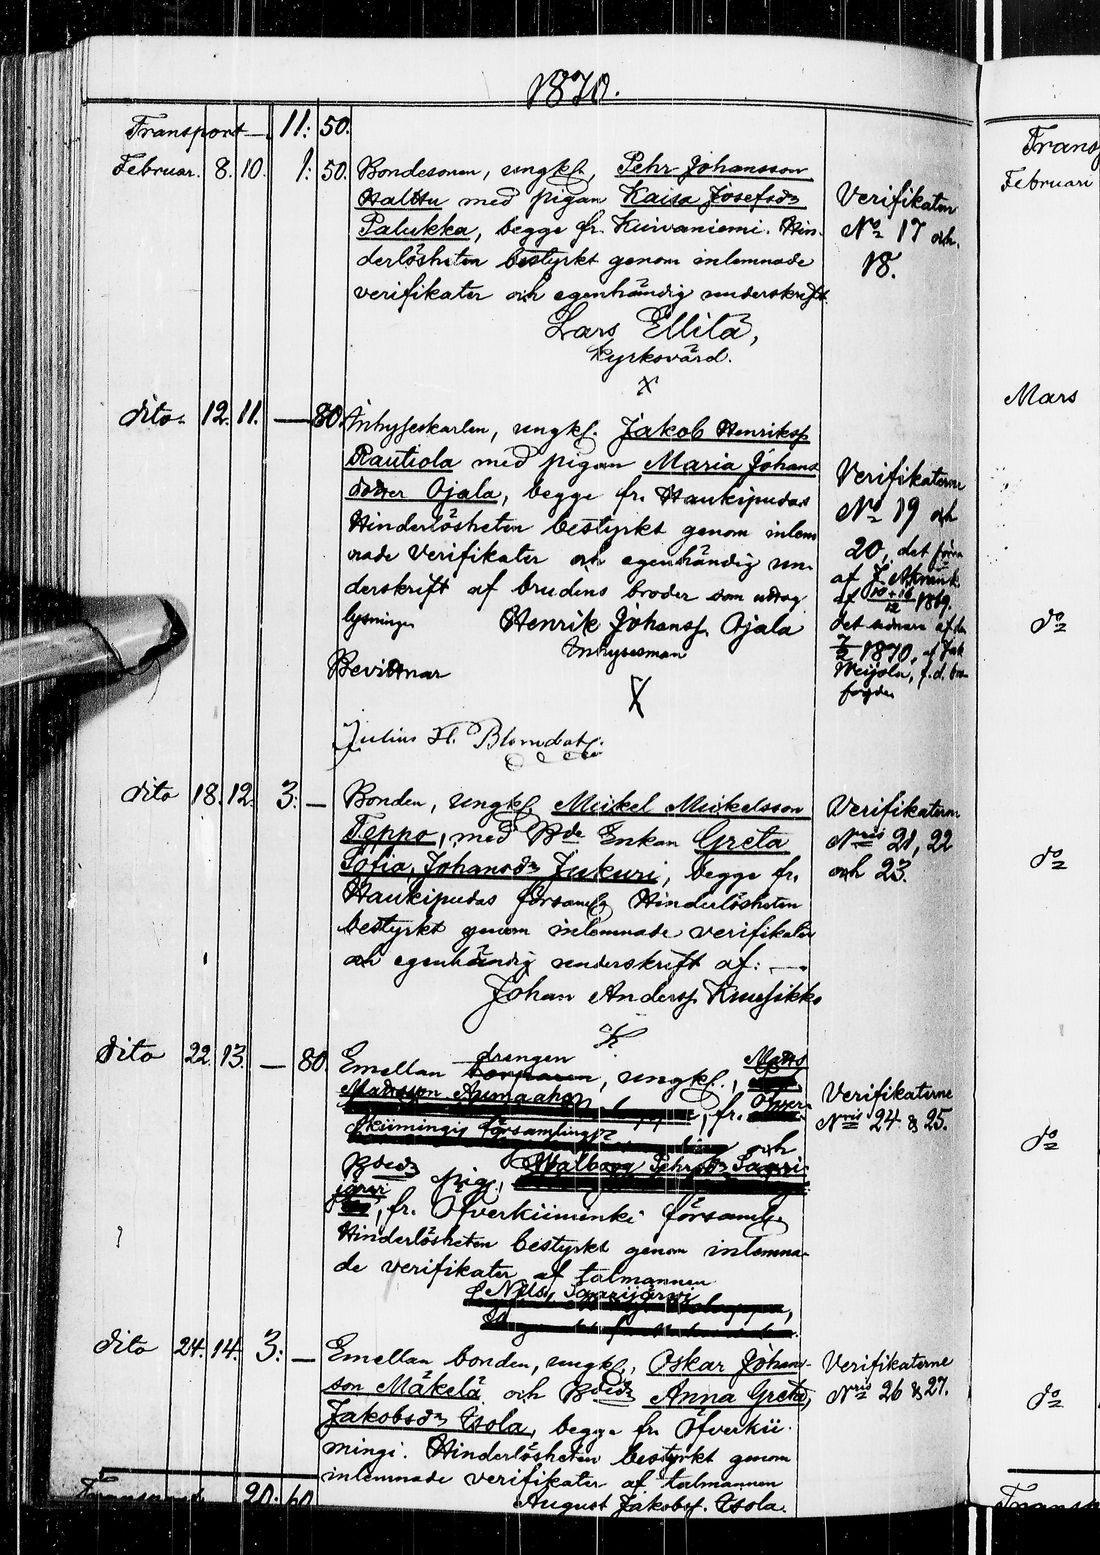 1870.
Transport — 11: 50.
Februar. 8. 10. 1: 50. Bondesonen, ungkl, Pehr Johansson
Halttu med pigan Kaisa Josefsdr
Palukka, begge fr. Kuivaniemi. Hin-
derlösheten bestyrkt genom inlemnade
verifikater och egenhändig underskrift
Lars Ellilä,
Kyrkovärd.
X
Verifikaten
No 17 och
18.
dito. 12. 11. — 80. Inhyseskarlen, ungkl. Jakob Henrikss
Rautiola med pigan Maria Johans
dotter Ojala, begge fr. Haukipudas
Hinderlösheten bestyrkt genom inlem
nade verifikater och egenhändig un-
derskrift af brudens broder som uttog
lysningen Henrik Johanss. Ojala
Inhysesman
Bevittnar X
Julius H. Blomdahl.
Verifikaterne
No 19 och
20, det förra
af J.
af 1869,
det senare af den
1870, af Jak
Weijola, f.d.
dito 18. 12. 3: — Bonden, ungkl. Mickel Mickelsson
Teppo, med Bde Enkan Greta
Sofia, Johansdr Jukuri, begge fr.
Haukipudas församl. Hinderlösheten
bestyrkt genom inlemnade verifikater
och egenhändig underskrift af: —
Johan Anderss. Kuusikko
Verifikaterne
Nris 21, 22
och 23.
dito 22. 13. — 80. Emellan drengen, ungkl., Matts
Mattsson Aumaaho, fr. Öfver-
kiimingi församling och
Bde pig. Walborg Pehrsdr Saari
järvi, fr. Öfverkiiminki församl.
Hinderlösheten bestyrkt genom inlemna-
de verifikater af talmannen
Nils Saarijärvi
Verifikaterne
Nris 24 & 25.
dito 24. 14. 3: — Emellan bonden, ungkl., Oskar Johans-
son Mäkelä och Bde Anna Greta,
Jakobsdr Isola, begge fr. Öfverkii-
mingi. Hinderlösheten bestyrkt genom
inlemnade verifikater af talmannen
August Jakobss. Isola.
Verifikaterne
Nris 26 & 27.
Transport 20: 60
Transp
Februari
Mars
do
do
do
do
Transp